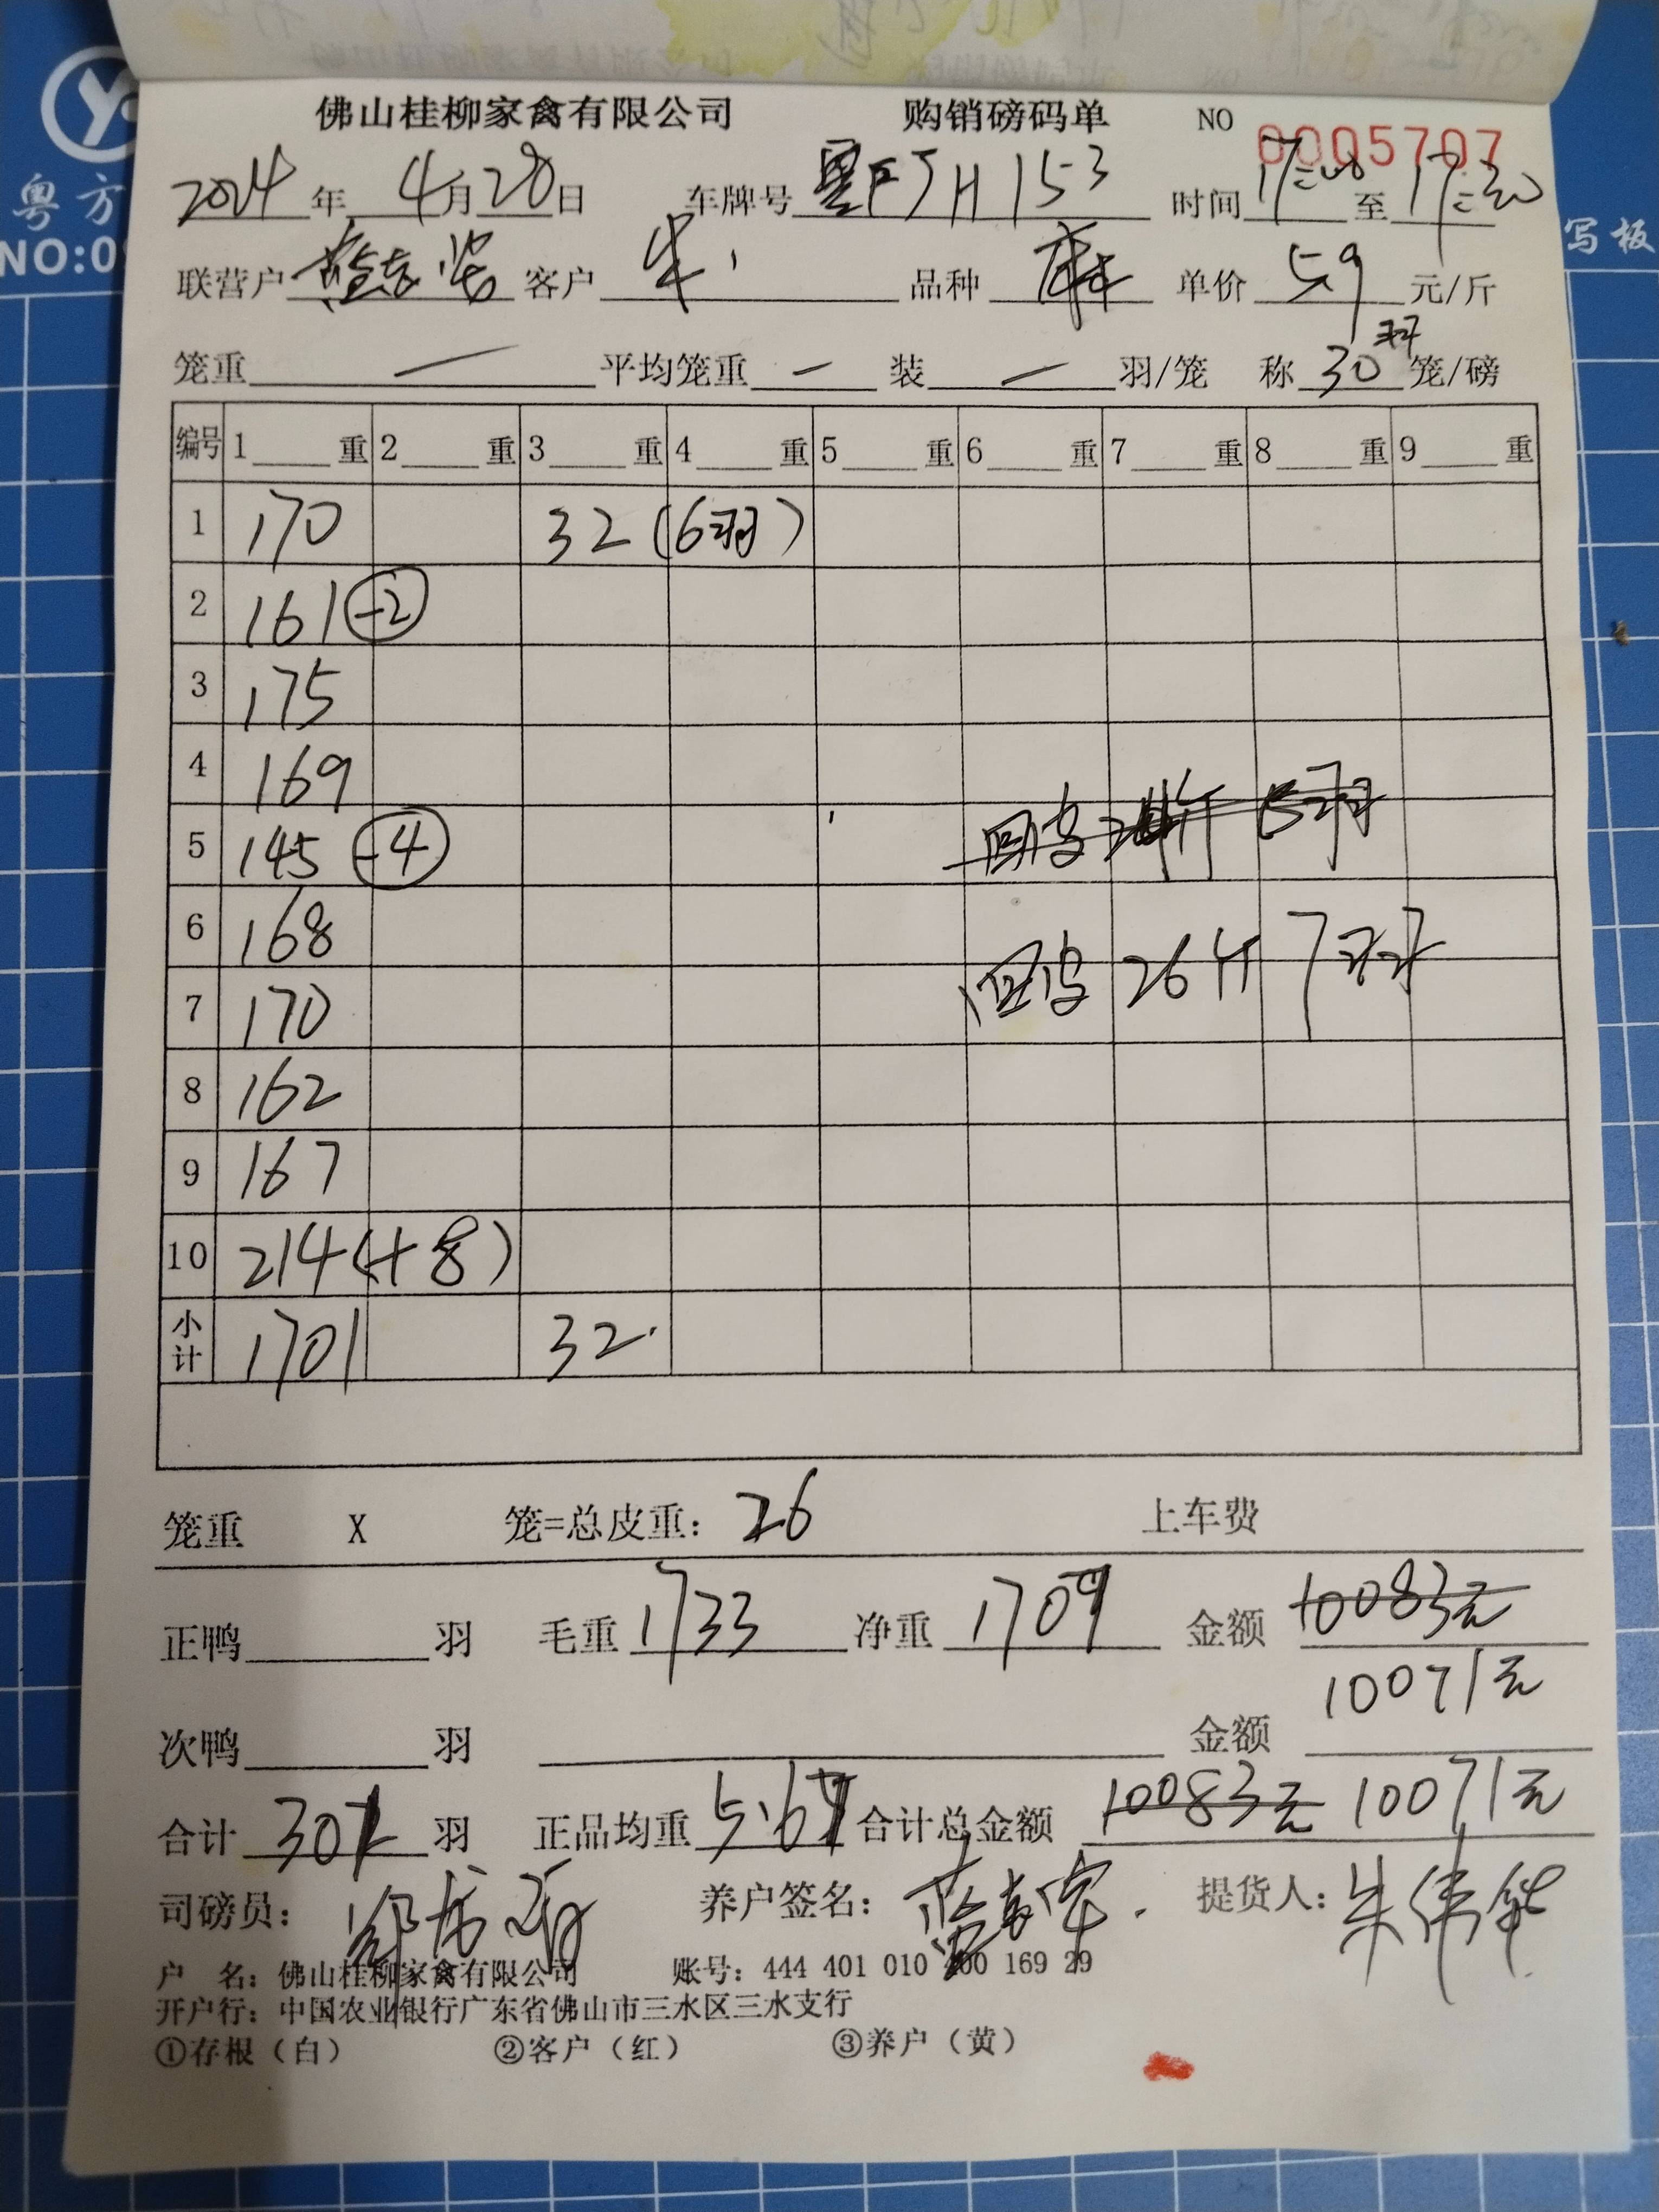 粤方
写板
NO:09
佛山桂柳家禽有限公司 购销磅码单 NO 0005707
2024年4月28日 车牌号粤FJH153 时间 17:08 至 17:30
联营户 客户 朱 品种 麻 单价 5.9 元/斤
笼重 — 平均笼重 — 装 — 羽/笼 称 30羽 笼/磅
编号 1 重 2 重 3 重 4 重 5 重 6 重 7 重 8 重 9 重
1 170 32(6羽)
2 161 -2
3 175
4 169
5 145 -4 回皮 斤 5羽
6 168
7 170 回皮 26斤 7羽
8 162
9 167
10 214(+8)
小计 1701 32
笼重 X 笼=总皮重: 26 上车费
正鸭 羽 毛重 1733 净重 1707 金额 10083元
10071元
次鸭 羽 金额
合计 301 羽 正品均重 5.67 合计总金额 10083元 10071元
司磅员: 养户签名: 提货人: 朱伟华
户 名: 佛山桂柳家禽有限公司 账号: 444 401 010 400 169 29
开户行: 中国农业银行广东省佛山市三水区三水支行
①存根(白) ②客户(红) ③养户(黄)